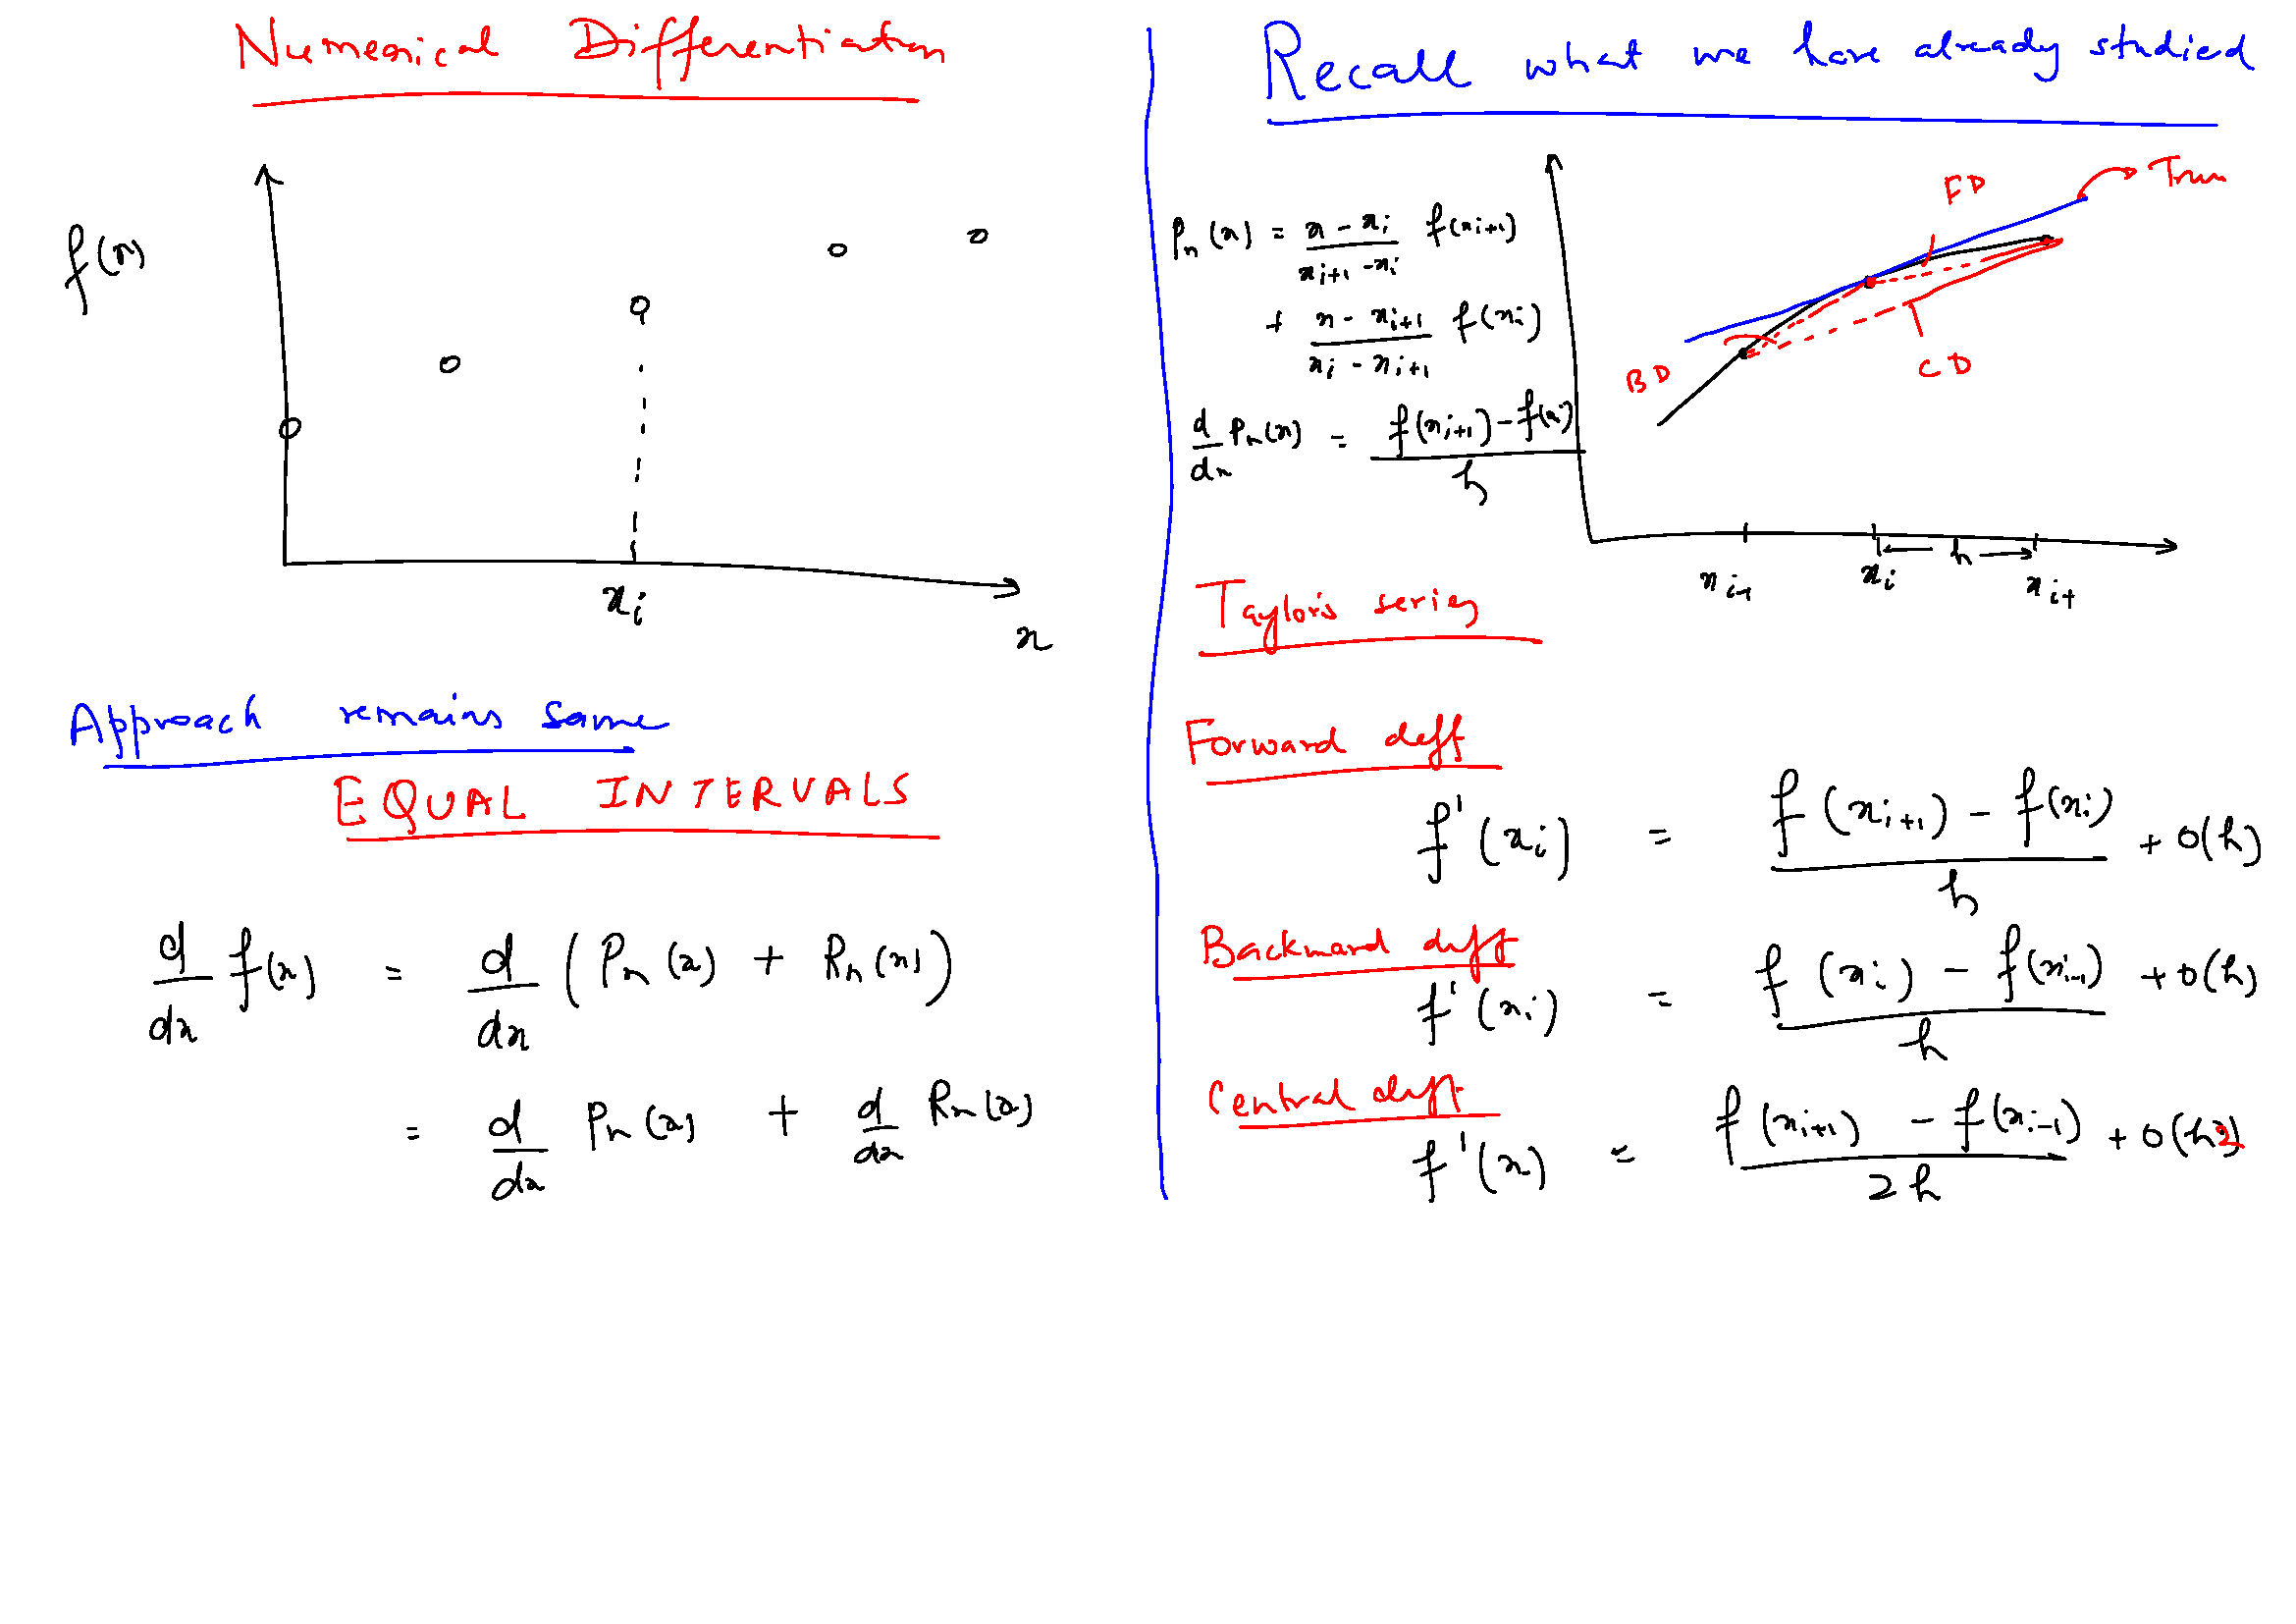 Numerical Differentiation
f(x)
x_i
x
Approach remains same
EQUAL INTERVALS
d/dx f(x) = d/dx (P_n(x) + R_n(x))
= d/dx P_n(x) + d/dx R_n(x)
Recall what we have already studied
P_n(x) = (x - x_i)/(x_{i+1} - x_i) f(x_{i+1})
+ (x - x_{i+1})/(x_i - x_{i+1}) f(x_i)
d/dx P_n(x) = (f(x_{i+1}) - f(x_i))/h
FD
True
BD
CD
x_{i-1} x_i h x_{i+1}
Taylor's series
Forward diff
f'(x_i) = (f(x_{i+1}) - f(x_i))/h + O(h)
Backward diff
f'(x_i) = (f(x_i) - f(x_{i-1}))/h + O(h)
Central diff
f'(x) = (f(x_{i+1}) - f(x_{i-1}))/2h + O(h^2)